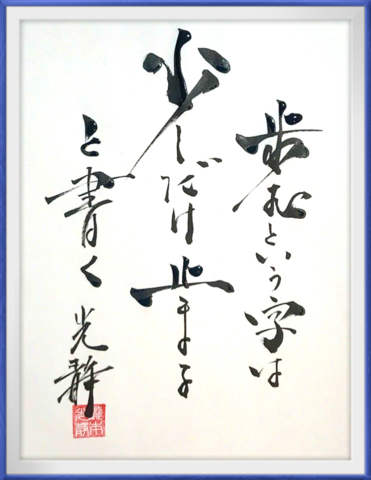 歩むという字は
少しだけ止まる
と書く 光静